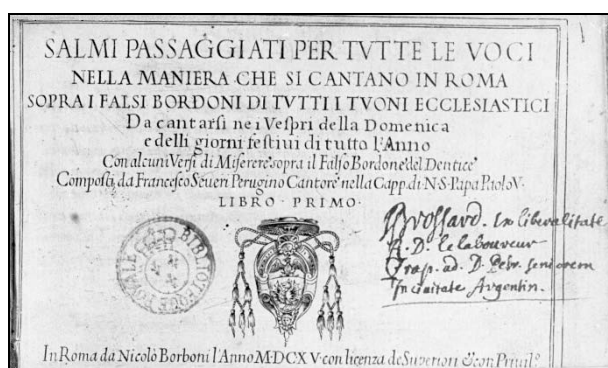 SALMI PASSAGGIATI PER TVTTE LE VOCI
NELLA MANIERA CHE SI CANTANO IN ROMA
SOPRA I FALSI BORDONI DI TVTTI I TVONI ECCLESIASTICI
Da cantarsi ne i Vespri della Domenica
e delli giorni festiui di tutto l'Anno
Con alcuni Versi di Miserere sopra il Falso Bordone del Dentice
Composti da Francesco Seueri Perugino Cantore nella Capp. di N. S. Papa Paolo V.
LIBRO · PRIMO ·
Brossard. Ex liberalitate
R. D. le laboureur
ad. D. Petr. seniorem
In ciuitate Argentin.
BIBLIOTHEQUE ROYALE
In Roma da Nicolò Borboni l'Anno M·DC XV· con licenza de Superiori & con Priuil.º